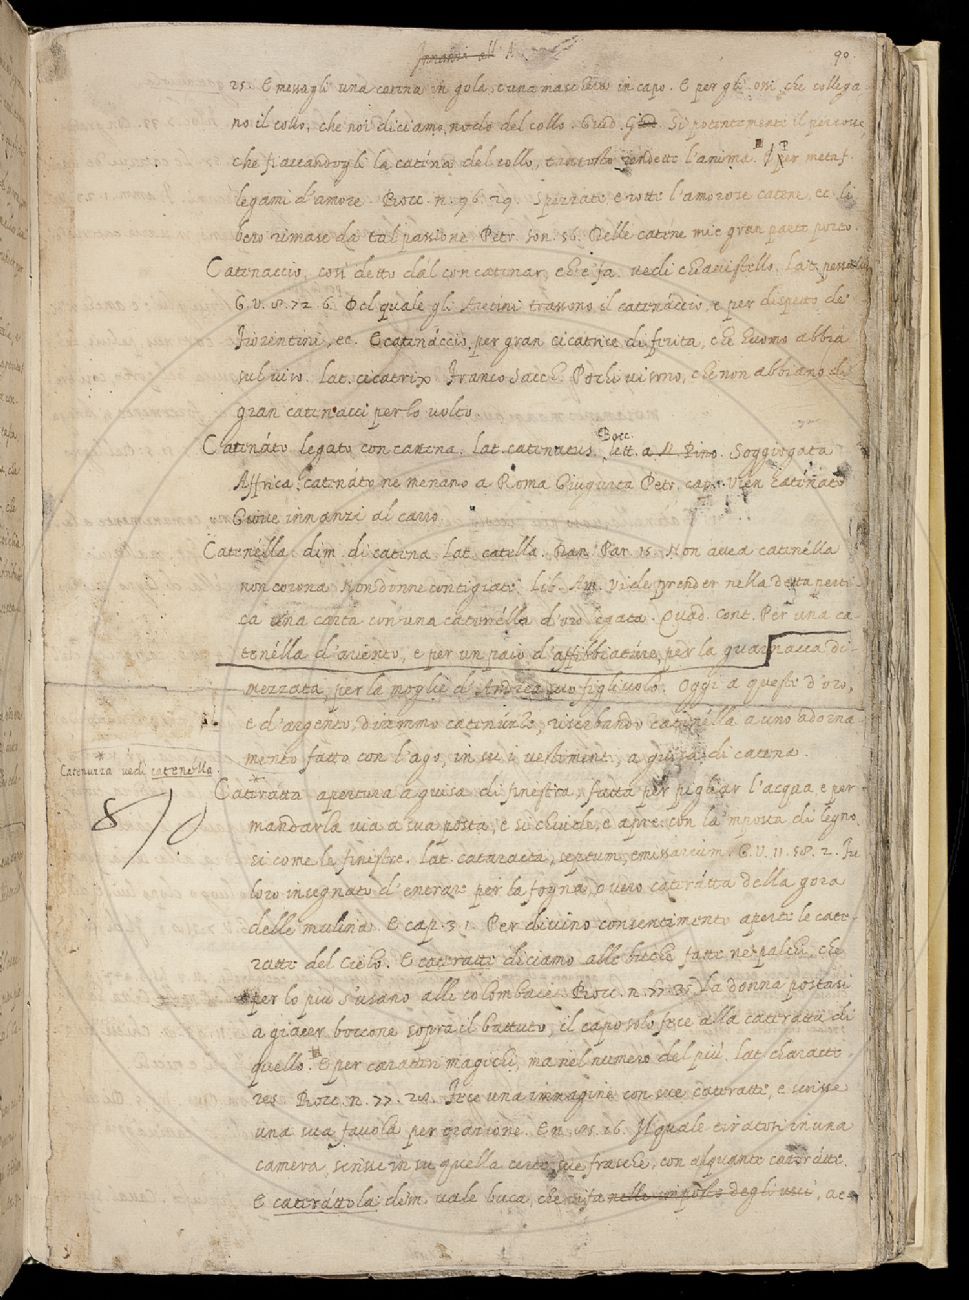 90.
25. E messagli una catena in gola, e una maschera in capo. E per gli ossi che collega-
no il collo, che noi diciamo, nodo del collo. Guid. G. Si potentemente il percosse
che fiaccandogli la catena del collo, tantosto rendette l'anima. Per metaf.
legami d'amore Bocc. n. 96. 29. Spezzate, e rotte l'amorose catene, ec. li
bero rimase da tal passione. Petr. son. 56. Delle catene mie gran parte porto.
Catenaccio, così detto dal concatenar, che e' fa. vedi chiavistello. Lat. pessulus
G. V. 8. 72. 6. Del quale gli Aretini trassono il catenáccio, e per dispetto de'
Fiorentini, ec. E catenáccio, per gran cicatrice di ferita, che l'uomo abbia
sul viso. Lat. cicatrix Franco Sacch. Pochi vi sono, che non abbiano di
gran catenacci per lo volto
Catenáto legato con catena. Lat. catenatus. Bocc. lett. a M. Pino. Soggiogata
Affrica, catenáto ne menano a Roma Giugurta Petr. cap. Vien catenato
Giove innanzi al carro.
Catenélla. dim. di catena. Lat. catella. Dan. Par. 15. Non avea catenélla
non corona Non donne contigiate. lib. Am. Vide prender nella detta perti-
ca una carta con una catenélla d'oro legata. Quad. Cont. Per una ca-
tenélla d'ariento, e per un paio d'affibbiature, per la guarnacca di-
mezzata, per la moglie d'Andrea suo figliuolo. Oggi a queste d'oro,
e d'argento, diremmo catenuzze, riserbando catenélla a uno adorna-
mento fatto con l'ago, in su i vestimenti, a guisa di catena.
* Catenuzza vedi catenella.
8
Cateratta apertura a guisa di finestra, fatta per pigliar l'acqua, e per
mandarla via a sua posta, e si chiude, e apre con la 'mposta di legno,
si come le finestre. Lat. cataracta, septum, emissarium. G. V. 11. 58. 2. Fu
loro insegnato d'entrare per la fogna, overo caterátta della gora
delle mulina. E cap. 31. Per divino consentimento aperte le cate-
ratte del Cielo. E cateratte diciamo alle buche fatte ne' palchi, che
per lo più s'usano alle colombaie. Bocc. n. 77. 35. La donna postasi
a giacer boccone sopra il battuto, il capo solo fece alla cateratta di
quello. E per caratteri magichi, ma nel numero del più, lat. characte-
res Bocc. n. 77. 28. Fece una immagine con sue cateratte, e scrisse
una sua favola per orazione. E n. 85. 16. Il quale tiratosi in una
camera, scrisse in su quella carta sue frasche, con alquante cateratte.
E caterattola dim. vale buca, che si fa nelle imposte degli usci, ac-